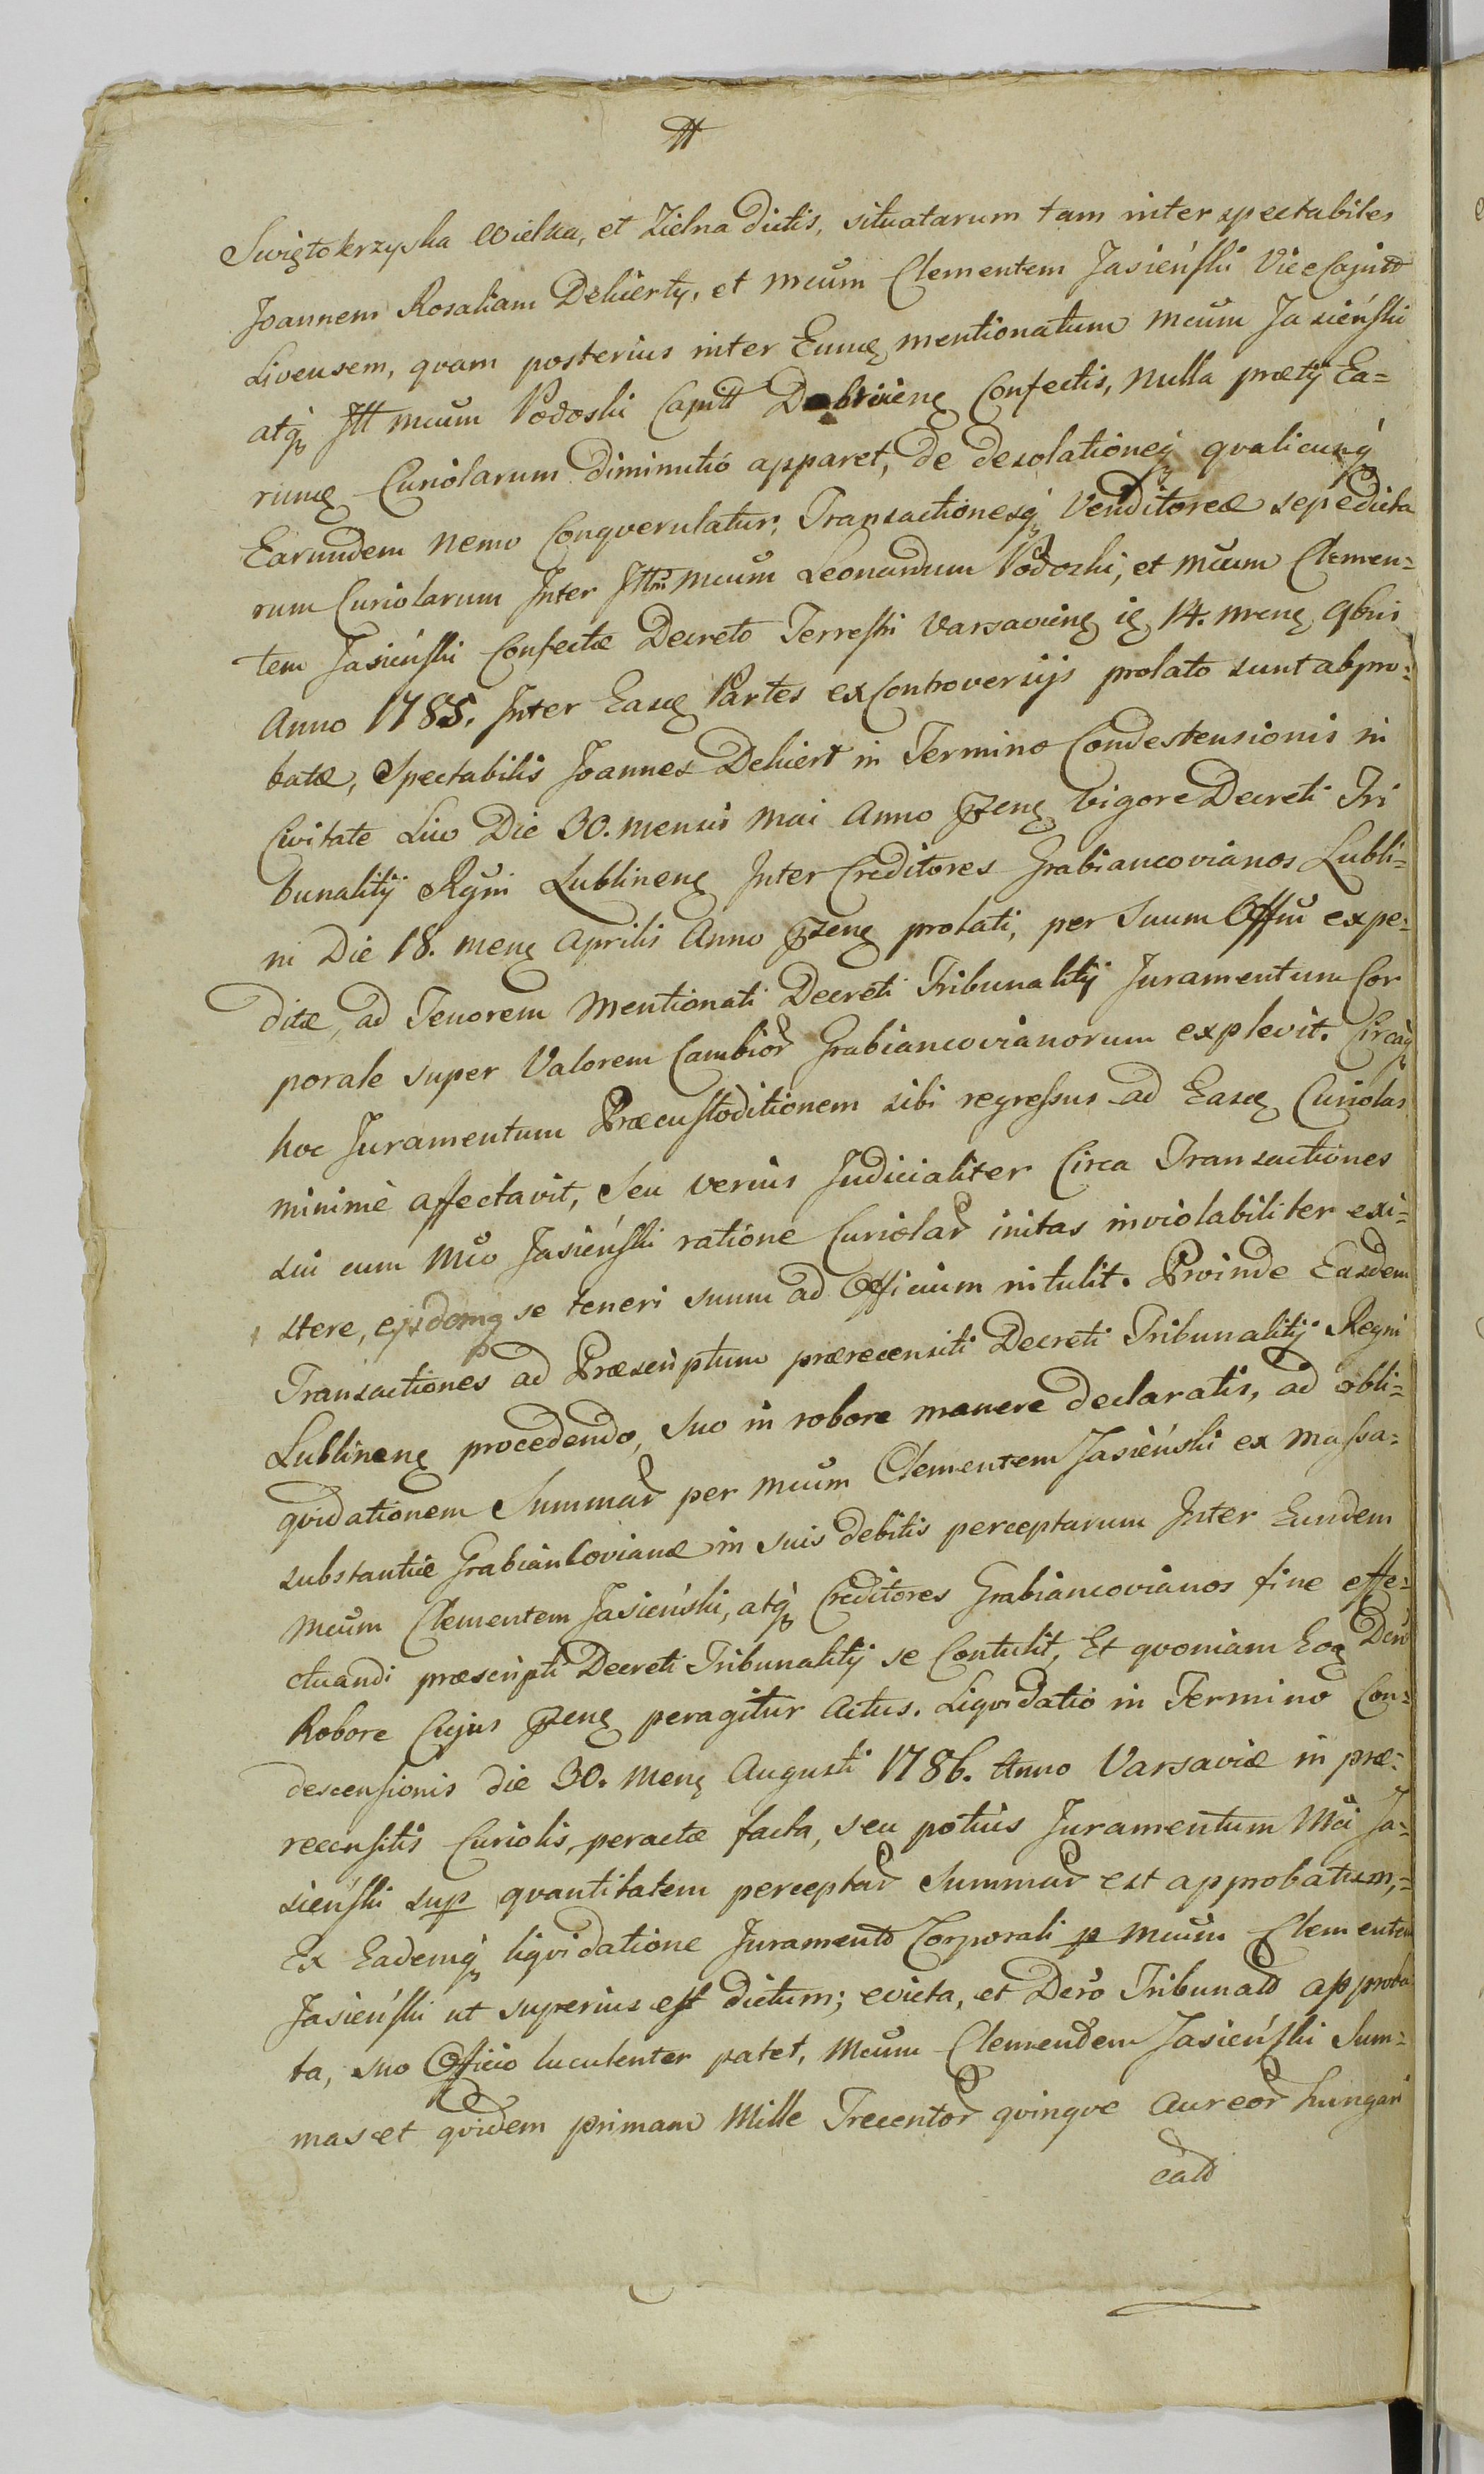 Swiętokrzyska Wielka, et Zielna dictis, situatarum tam inter spectabiles
Joannem Rosaliam Dekierty, et mcum Clementem Jasieński Vice Capitt
Livensem, quam posterius inter Eumq mentionatum mcum Jasieński
atq Jtt mcum Podoski Capitt Dobrzineng Confectis, nulla prætij Ea=
rumq Curiolarum diminutió apparet, de desolationeq qvalicunq
Earundem nemo Conqverulatur, Transactionesq Venditoreæ sepedicta
rum Curiolarum Inter Jttm mcum Leonardum Podoski, et mcum Clemen=
tem Jasieński Confectæ Decreto Terrestri Varsavieng 14. mens
Anno 1785. Inter Easq Partes ex Controversijs prolato sunt appro=
batæ, Spectabilis Joannes Dekiert in Termino Condestensionis in
Civitate Liw Die 30. mensis Mai Anno pzeng vigore Decreti Tri
bunalitij Regni Lublineng Inter Creditores Grabiancovianos Lubli=
ni Die 18. meng Aprilis Anno pzeng prolati, per Suum Offm expe=
ditæ, ad Tenorem mentionati Decreti Tribunalitij Juramentum Cor
porale super Valorem Cambior Grabiancovianorum explevit. Circaq
hoc Juramentum Præcustoditionem sibi regressus ad Easq Curiolas
minimè affectavit, Seu verius Judicialiter Circa Transactiones
sui cum Mco Jasieński ratione Curiolar initas inviolabiliter exi=
stere, ejsdemq se teneri suum ad Officium intulit. Proinde Easdem
Transactiones ad Præscriptum prærecensiti Decreti Tribunalitij Regni
Lublineng procedendo, Suo in robore manere declaratis, ad obli=
qvidationem Summar per mcum Clementem Jasieński ex massa=
substantiæ Grabiancovianæ in suis debitis perceptarum Inter Eundem
mcum Clementem Jasieński, atq Creditores Grabiancovianos fine effe=
ctuandi præscripti Decreti Tribunalitij se Contulit, Et qvoniam Eoq Dero
Robore Cujus pzeng peragitur Actus. Liqvidatio in Termino Con=
descensionis die 30. meng Augusti 1786. Anno Varsaviæ in præ=
recensitis Curiolis, peractæ facta, seu potius Juramentum Mci Ja=
sieński sup qvantitatem perceptar Summar est approbatum,=
Ex Eademq liqvidatione Juramento Corporali p mcum Clementem
Jasieński ut superius est dictum; evicta, et Dero Tribunald approba
ta, suo Officio luculenter patet, mcum Clemendem Jasieński Sum=
mas et qvidem primam Mille Trecentor qvinqve Aureor hungari
cald